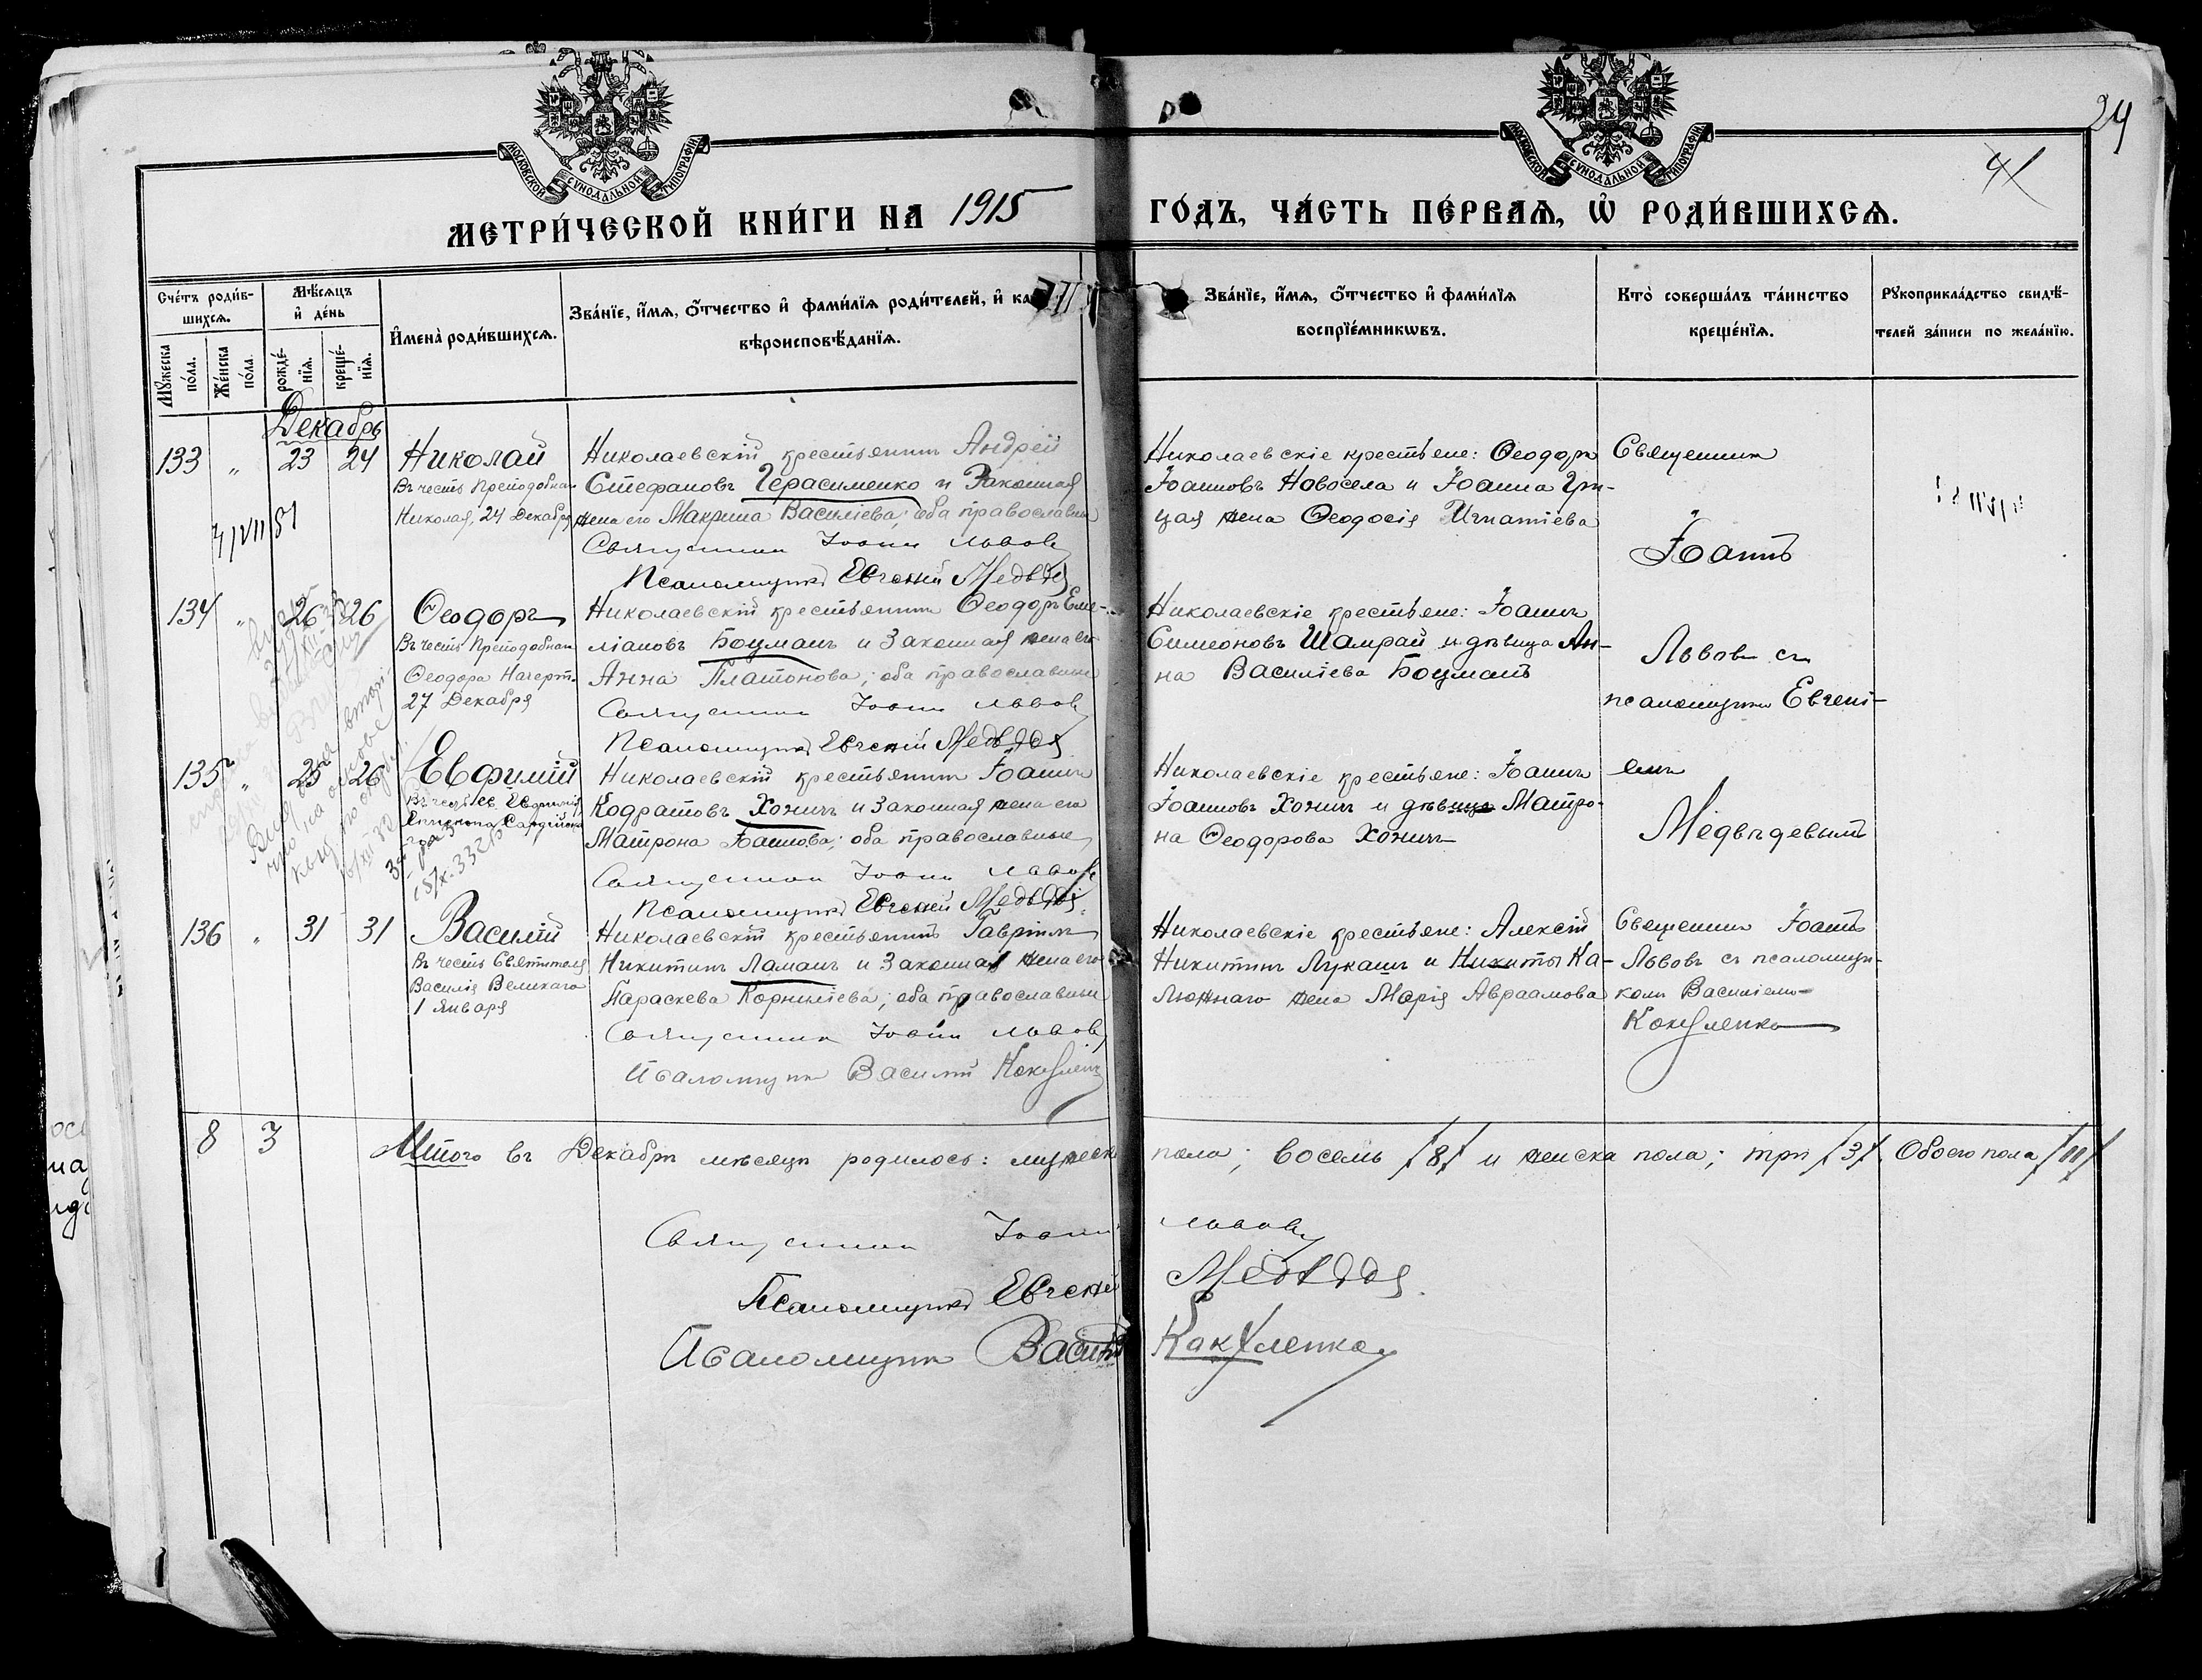 24
41
МОСКОВСКОЙ СѴНОДАЛЬНОЙ ТИПОГРАФІИ
МОСКОВСКОЙ СѴНОДАЛЬНОЙ ТИПОГРАФІИ
МЕТРИ́ЧЕСКОЙ КНИ́ГИ НА 1915 ГО́ДЪ, ЧА́СТЬ ПЕ́РВАѦ, Ѡ҆ РОДИ́ВШИХСѦ.
Сче́тъ роди́в-
шихсѧ.
Мꙋ́жеска по́ла.
Же́нска по́ла.
Мѣ́сѧцъ и҆ де́нь
рожде́-
нїѧ.
креще́-
нїѧ.
И҆мена̀ роди́вшихсѧ.
Зва́нїе, и҆́мѧ, ѻ҆́тчество и҆ фами́лїѧ роди́телей, и҆ ка
вѣроисповѣ́данїѧ.
Зва́нїе, и҆́мѧ, ѻ҆́тчество и҆ фами́лїѧ
воспрїе́мникѡвъ.
Кто̀ соверша́лъ та́инство
креще́нїѧ.
Рꙋкоприкла́дство свидѣ́-
телей за́писи по жела́нїю.
Декабрь
133 " 23 24 Николай
Въ честь Преподобнаго
Николая, 24 Декабря
Николаевскій крестьянинъ Андрей
Стефановъ Герасименко и Законная
жена его Макрина Василіева; оба православные
Священникъ Іоаннъ Львовъ
Псаломщикъ Евгеній Медвѣдев
Николаевскіе крестьяне: Ѳеодоръ
Іоанновъ Новосела и Іоанна Гри-
цая жена Ѳеодосія Игнатіева
Священникъ
Іоаннъ
4/VII 51
134 " 26 26 Ѳеодоръ
Въ честь Преподобнаго
Ѳеодора Начерт.
27 Декабря
Николаевскій крестьянинъ Ѳеодоръ Еме-
ліановъ Боцманъ и Законная жена его
Анна Платонова; оба православные
Священникъ Іоаннъ Львовъ
Псаломщикъ Евгеній Медвѣдев
Николаевскіе крестьяне: Іоаннъ
Симеоновъ Шамрай и дѣвица Ан-
на Василіева Боцманъ
Львовъ съ
псаломщикомъ Евгені-
135 " 25 26 Евфимій
Въ честь св. Евфимія
Епископа Сардійскаго
Николаевскій крестьянинъ Іоаннъ
Кодратовъ Хоничъ и Законная жена его
Матрона Іоаннова; оба православные
Священникъ Іоаннъ Львовъ
Псаломщикъ Евгеній Медвѣдев
Николаевскіе крестьяне: Іоаннъ
Іоанновъ Хоничъ и дѣвица Матро-
на Ѳеодорова Хоничъ
емъ
Медвѣдевымъ
136 " 31 31 Василій
Въ честь Святителя
Василія Великаго
1 Января
Николаевскій крестьянинъ Гавріилъ
Никитинъ Ламанъ и Законная жена его
Параскева Корниліева; оба православные
Священникъ Іоаннъ Львовъ
Псаломщикъ Василій Кокуленко
Николаевскіе крестьяне: Алексій
Никитинъ Лукашъ и Никиты Ка-
люжнаго жена Марія Авраамова
Священникъ Іоаннъ
Львовъ съ псаломщи-
комъ Василіемъ
Кокуленко
8 3 Итого въ Декабрѣ мѣсяцѣ родилось: мужеска пола; восемь /8/ и женска пола; три /3/. Обоего пола /11/
Священникъ Іоаннъ Львовъ
Псаломщикъ Евгеній Медвѣдев
Псаломщикъ Василій Кокуленко